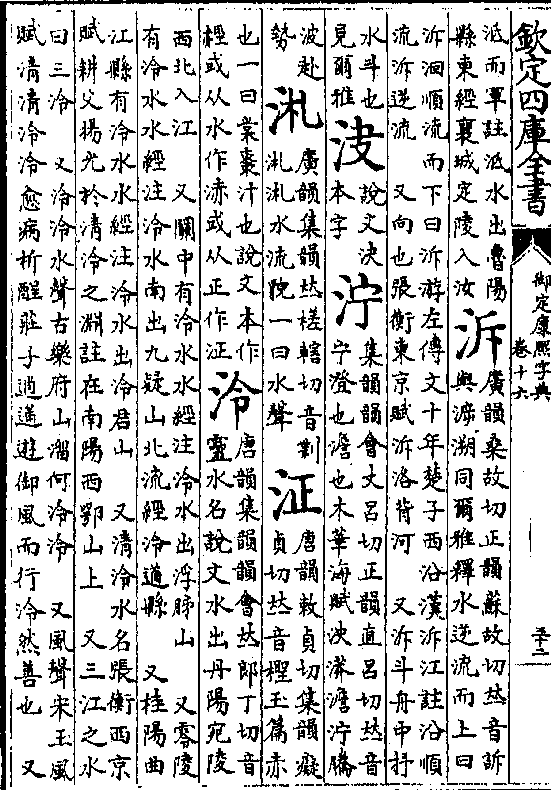 欽定四庫全書
御定康熙字典
卷十六
泜而軍註泜水出魯陽
縣東經襄城定陵入汝
泝
廣韻桑故切正韻蘇故切𠀤音訴
與㴑溯同爾雅釋水逆流而上曰
泝洄順流而下曰泝游左傳文十年楚子西沿漢泝江註沿順
流泝逆流　又向也張衡東京賦泝洛背河　又泝斗舟中抒
水斗也
見爾雅
㳀
說文決
本字
泞
集韻韻會丈呂切正韻直呂切𠀤音
宁澄也澹也木華海賦泱漭澹泞騰
波赴
勢
汃
廣韻集韻𠀤槎轄切音㔍
汃汃水流皃一曰水聲
泟
唐韻敕貞切集韻癡
貞切𠀤音檉玉篇赤
也一曰棠棗汁也說文本作
䞓或从水作浾或从正作泟
泠
唐韻集韻韻會𠀤郎丁切音
靈水名說文水出丹陽宛陵
西北入江　又關中有泠水水經注泠水出浮肺山　又零陵
有泠水水經注泠水南出九疑山北流經泠道縣　又桂陽曲
江縣有泠水水經注泠水出泠君山　又清泠水名張衡西京
賦耕父揚光於清泠之淵註在南陽西鄂山上　又三江之水
曰三泠　又泠泠水聲古樂府山溜何泠泠　又風聲宋玉風
賦清清泠泠愈病析酲莊子逍遙遊御風而行泠然善也　又